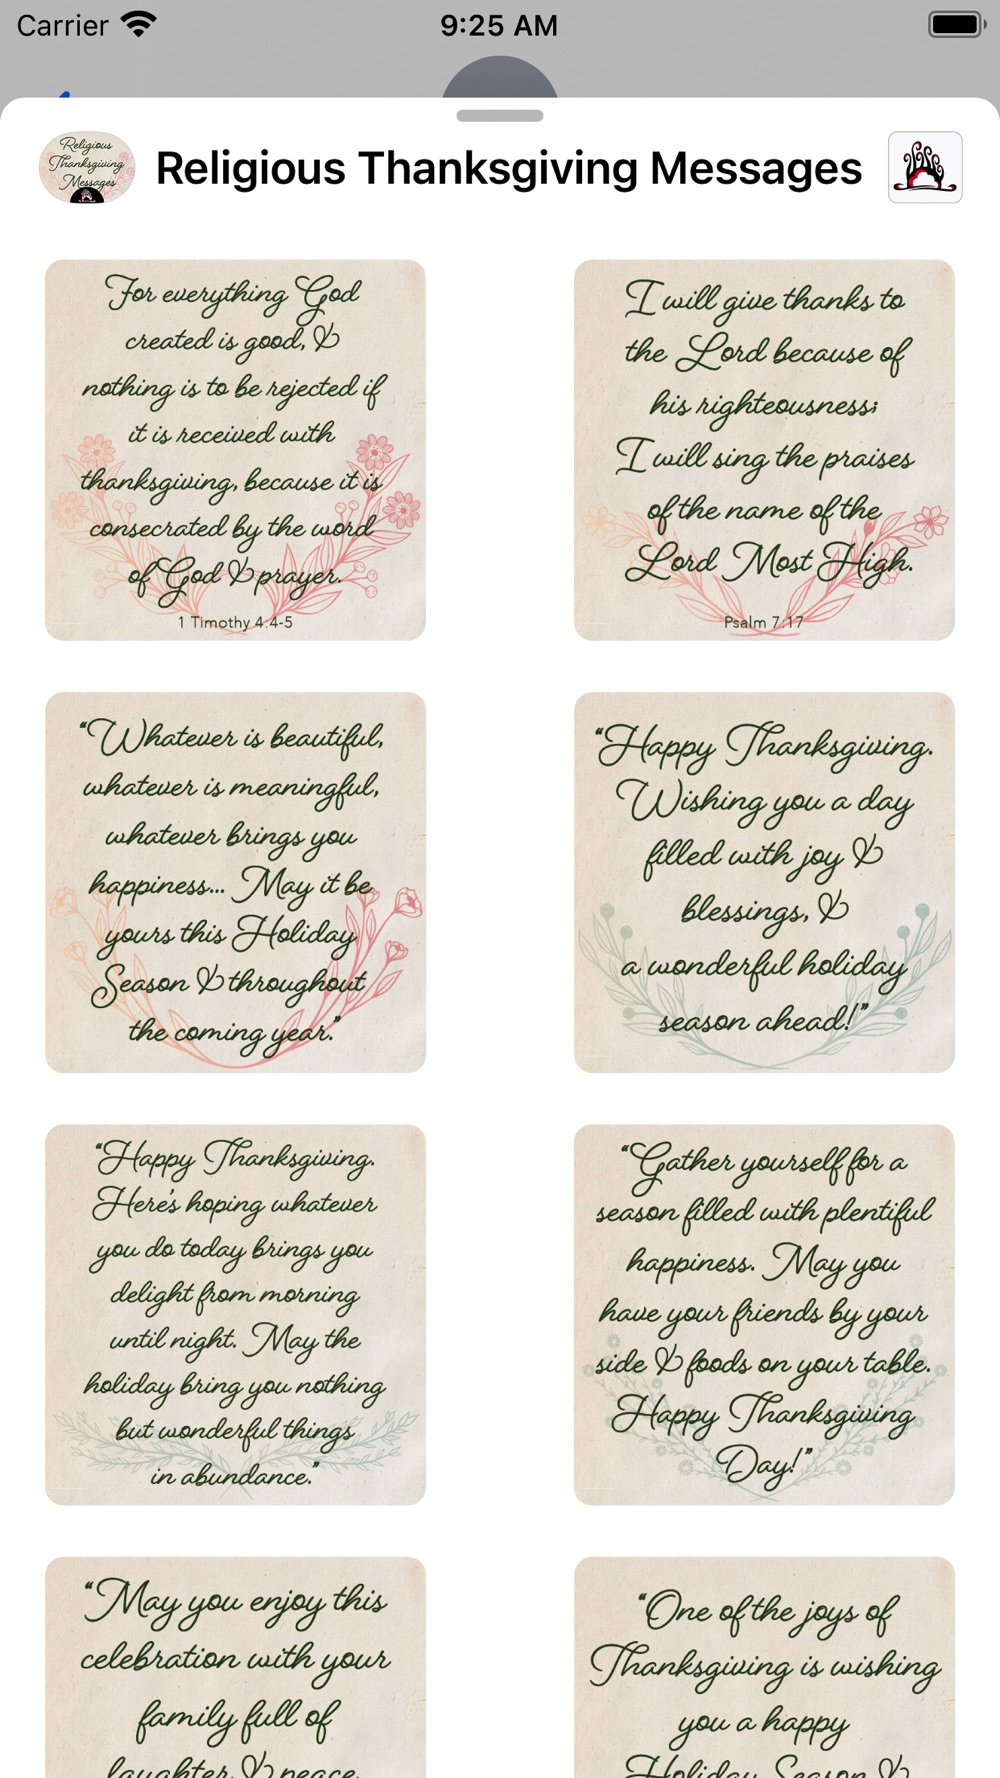 Carrier
9:25 AM
Religious
Thanksgiving
Messages
Religious Thanksgiving Messages
For everything God
created is good, &
nothing is to be rejected if
it is received with
thanksgiving, because it is
consecrated by the word
of God & prayer.
1 Timothy 4:4-5
I will give thanks to
the Lord because of
his righteousness;
I will sing the praises
of the name of the
Lord Most High.
Psalm 7:17
“Whatever is beautiful,
whatever is meaningful,
whatever brings you
happiness... May it be
yours this Holiday
Season & throughout
the coming year.”
“Happy Thanksgiving.
Wishing you a day
filled with joy &
blessings, &
a wonderful holiday
season ahead!”
“Happy Thanksgiving.
Here's hoping whatever
you do today brings you
delight from morning
until night. May the
holiday bring you nothing
but wonderful things
in abundance.”
“Gather yourself for a
season filled with plentiful
happiness. May you
have your friends by your
side & foods on your table.
Happy Thanksgiving
Day!”
“May you enjoy this
celebration with your
family full of
laughter & peace
“One of the joys of
Thanksgiving is wishing
you a happy
Holiday Season &